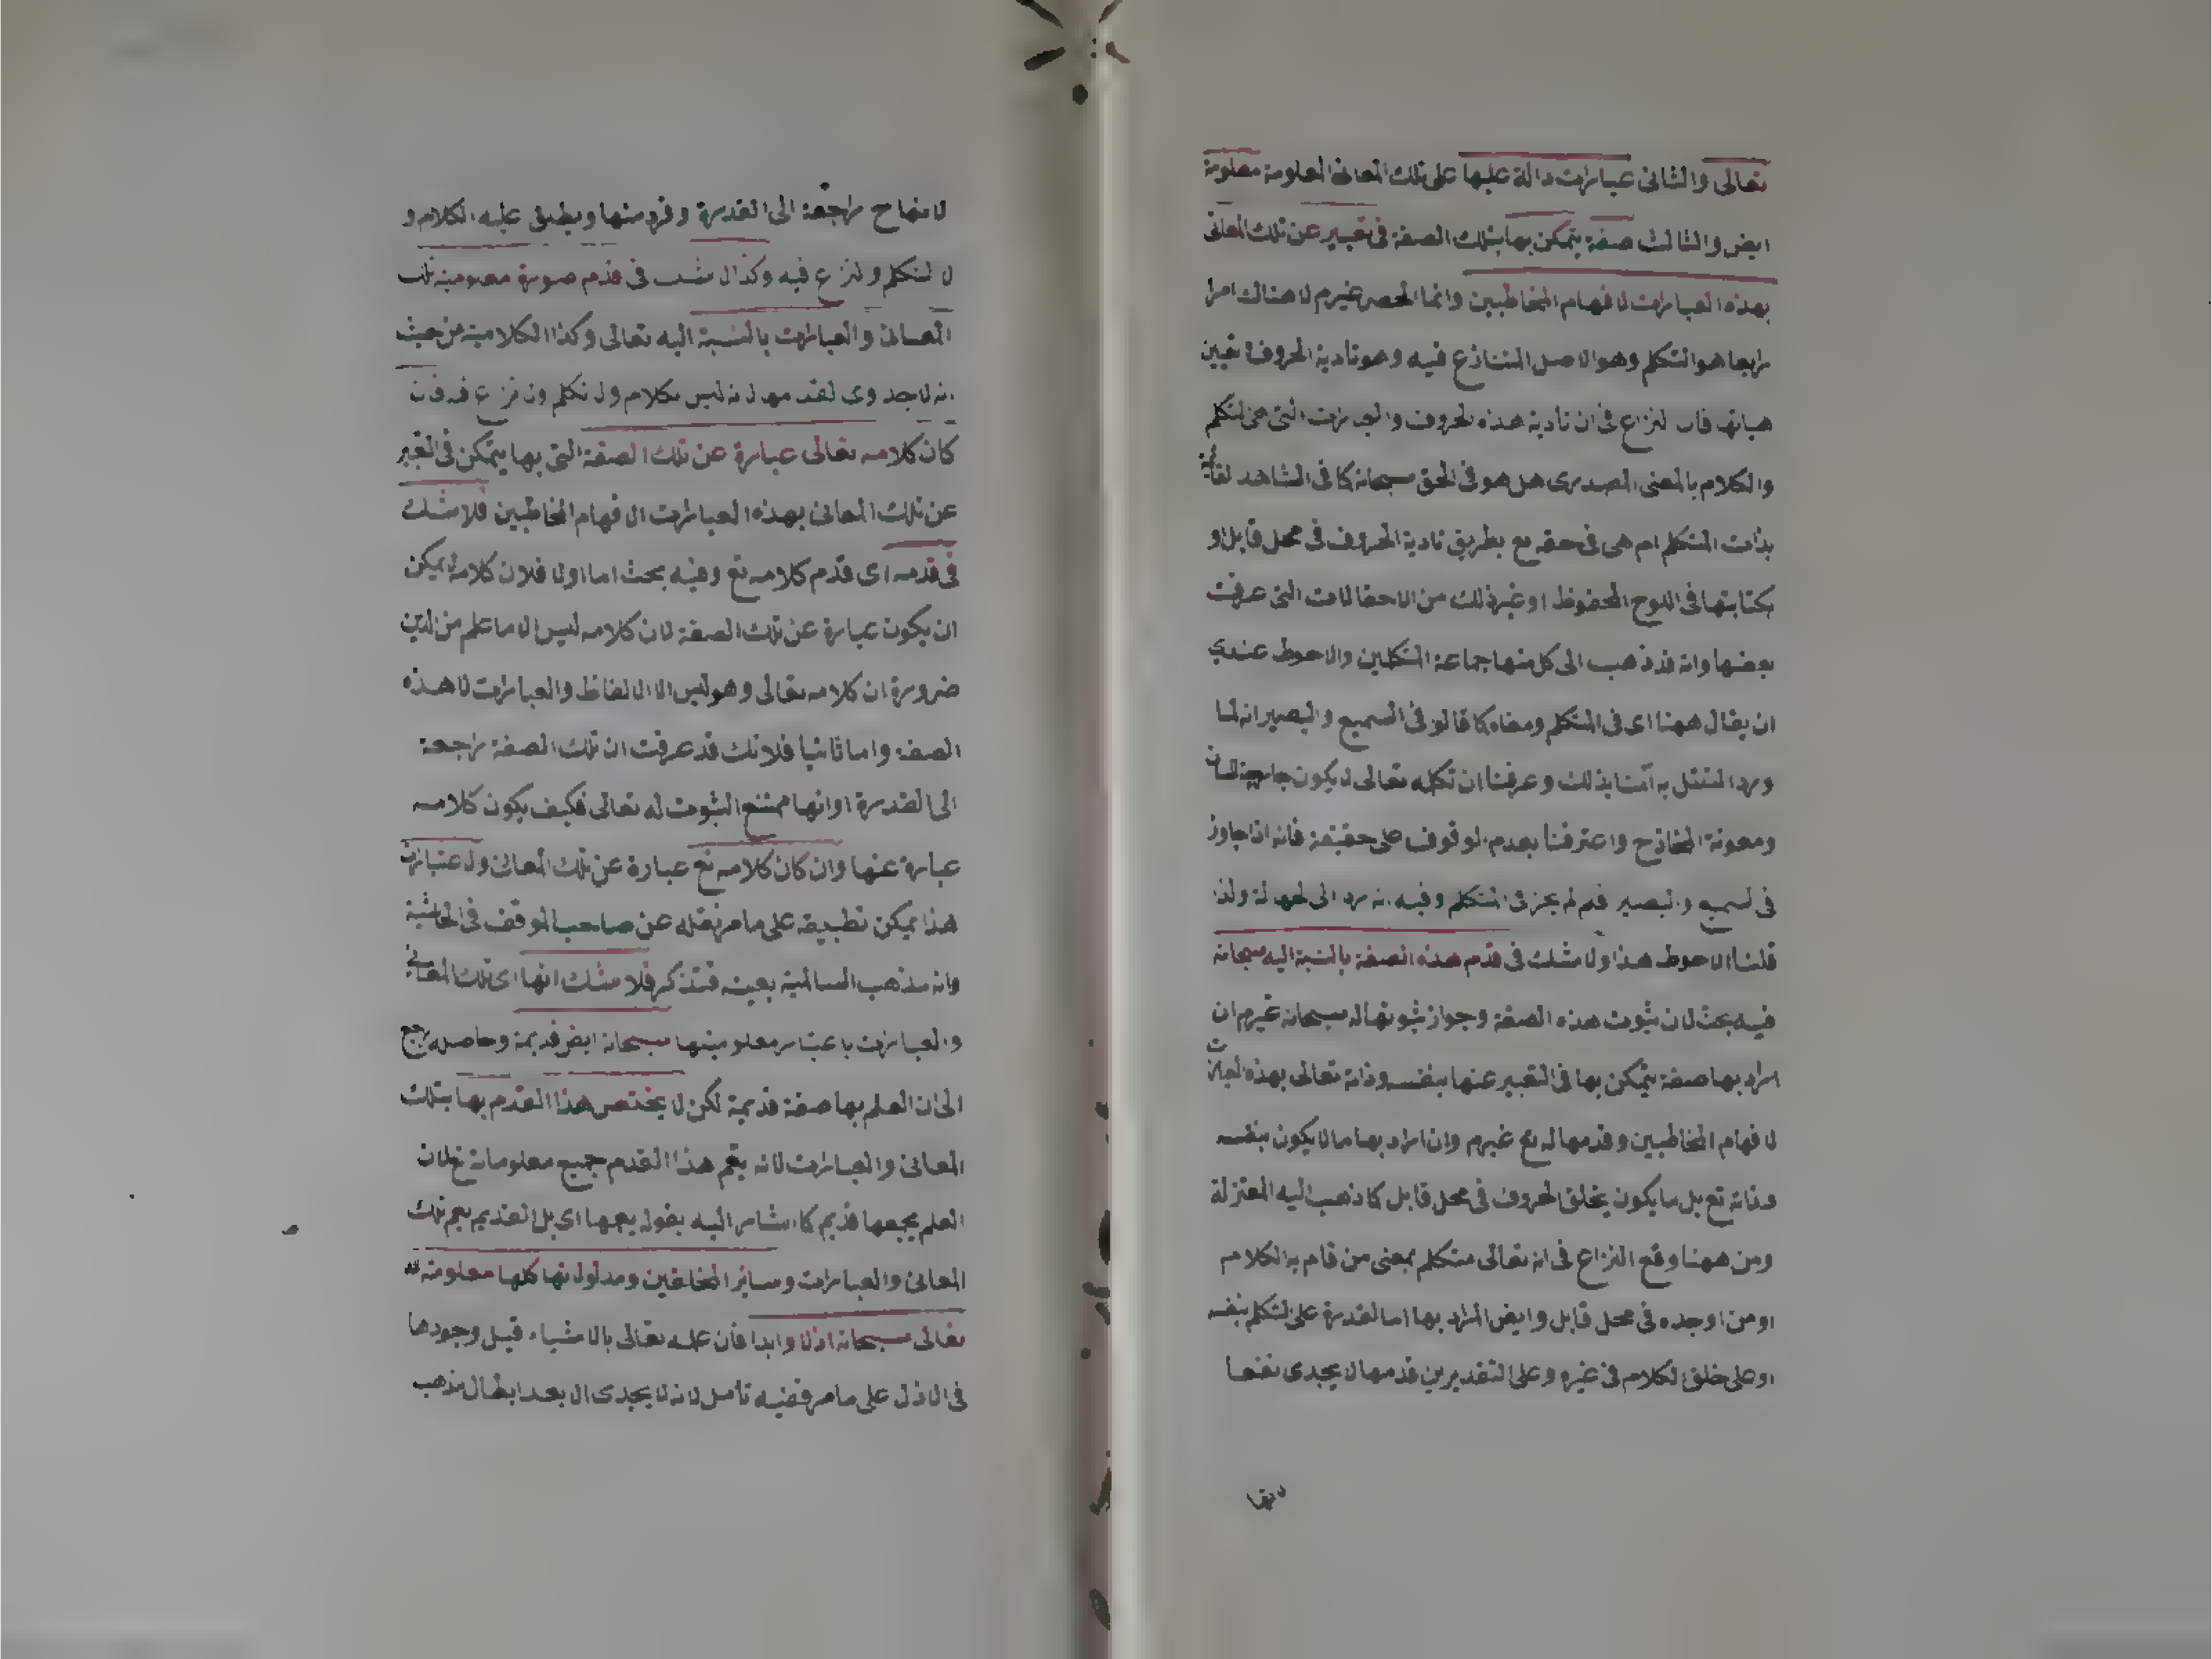 تعالى والثانى عبارات دالة عليها على تلك المعانى المعلومة معلومة
ايض والثالث صفة يتمكن بها بتلك الصفة فى تعبير عن تلك المعانى
بهذه العبارات لافهام المخاطبين وانما الحصر غيرم لا هناك امرا
رابعا هو التكلم وهو الاصل المتنازع فيه وهو تادية الحروف وتعيين
هياتها فان لنزاع فى ان تادية هذه لحروف والعبارات التى هى لتكلم
والكلام بالمعنى المصدرى هل هو فى الحق سبحانه كما فى الشاهد
بذات المتكلم ام هى فى حقه تع بطريق تادية الحروف فى محل قابل او
بكتابتها فى اللوح المحفوظ او غير ذلك من الاحتمالات التى عرفت
بعضها وانه قد ذهب الى كل منها جماعة المتكلمين والاحوط عندى
ان يقال ههنا اى فى المتكلم ومعناه كما قالو فى السميع والبصير انه لما
ورد النقل به آمنا بذلك وعرفنا ان تكلمه تعالى لا يكون
ومعونة المخارج واعترفنا بعدم لوقوف على حقيقة فانه اذا جاوز
فى لسميع والبصير فلم لم يجز فى المتكلم وفيه نه رد الى لجهالة ولذا
قلنا الاحوط هذا ولا شك فى قدم هذه الصفة بالنسبة اليه سبحانه
فيه بحث لان ثبوت هذه الصفة وجواز ثبوتها له سبحانه غيرم ان
اراد بها صفة يتمكن بها فى التعبير عنها بنفسه وذاته تعالى بهذه العبارات
لافهام المخاطبين وقدمها له تع غيرم وان اراد بها مالا يكون بنفسه
وذاته تع بل ما يكون يخلق لحروف فى محل قابل كما ذهب اليه المعتزلة
ومن ههنا وقع النزاع فى انه تعالى متكلم بمعنى من قام به الكلام
او من اوجده فى محل قابل وايض المراد بها اما لقدرة على لتكلم بنفسه
او على خلق لكلام فى غيره وعلى التقديرين قدمها لا يجدى نفعا
لانها ح راجعة الى القدرة وفرد منها ويطبق عليه الكلام و
لا لتكلم ولنزاع فيه وكذا لا شك فى قدم صورة معلومية تلك
المعانى والعبارات بالنسبة اليه تعالى وكذا الكلامية من حيث
انه لا جدوى لقدمها لانه ليس بكلام ولا تكلم ولا نزاع فيه فان
كان كلامه تعالى عبارة عن تلك الصفة التى بها يتمكن فى التعبير
عن تلك المعانى بهذه العبارات الافهام المخاطبين فلا شك
فى قدمه اى قدم كلامه تع وفيه بحث اما اولا فلان كلامه لا يمكن
ان يكون عبارة عن تلك الصفة لان كلامه ليس الا ما علم من الدين
ضرورة ان كلامه تعالى وهو ليس الا الالفاظ والعبارات لا هذه
الصفة واما ثانيا فلانك قد عرفت ان تلك الصفة راجعة
الى القدرة او انها ممتنع الثبوت له تعالى فكيف يكون كلامه
عبارة عنها وان كان كلامه تع عبارة عن تلك المعان والعبارات
هذا يمكن تطبيقه على ما مر نقله عن صاحب الموقف فى الحاشية
وانه مذهب السالمية بعينه فتذكر فلا شك انها اى تلك المعانى
والعبارات باعتبار معلوميتها سبحانه ايض قديمة وحاصله يرجع
الى ان العلم بها صفة قديمة لكن لا يختص هذا القدم بها بتلك
المعانى والعبارات لانه يعم هذا القدم جميع معلوماته تع لان
العلم بجمعها قديم كما اشار اليه بقوله يعمها اى بل القديم يعم تلك
المعانى والعبارات وسائر المخلفين ومدلولاتها كلها معلومة له
تعالى سبحانه ازلا وابدا فان علمه تعالى بالاشياء قبل وجودها
فى الازل على ما مر ففيه تأمل لانه لا يجدى الا بعد ابطال مذهب
لانها